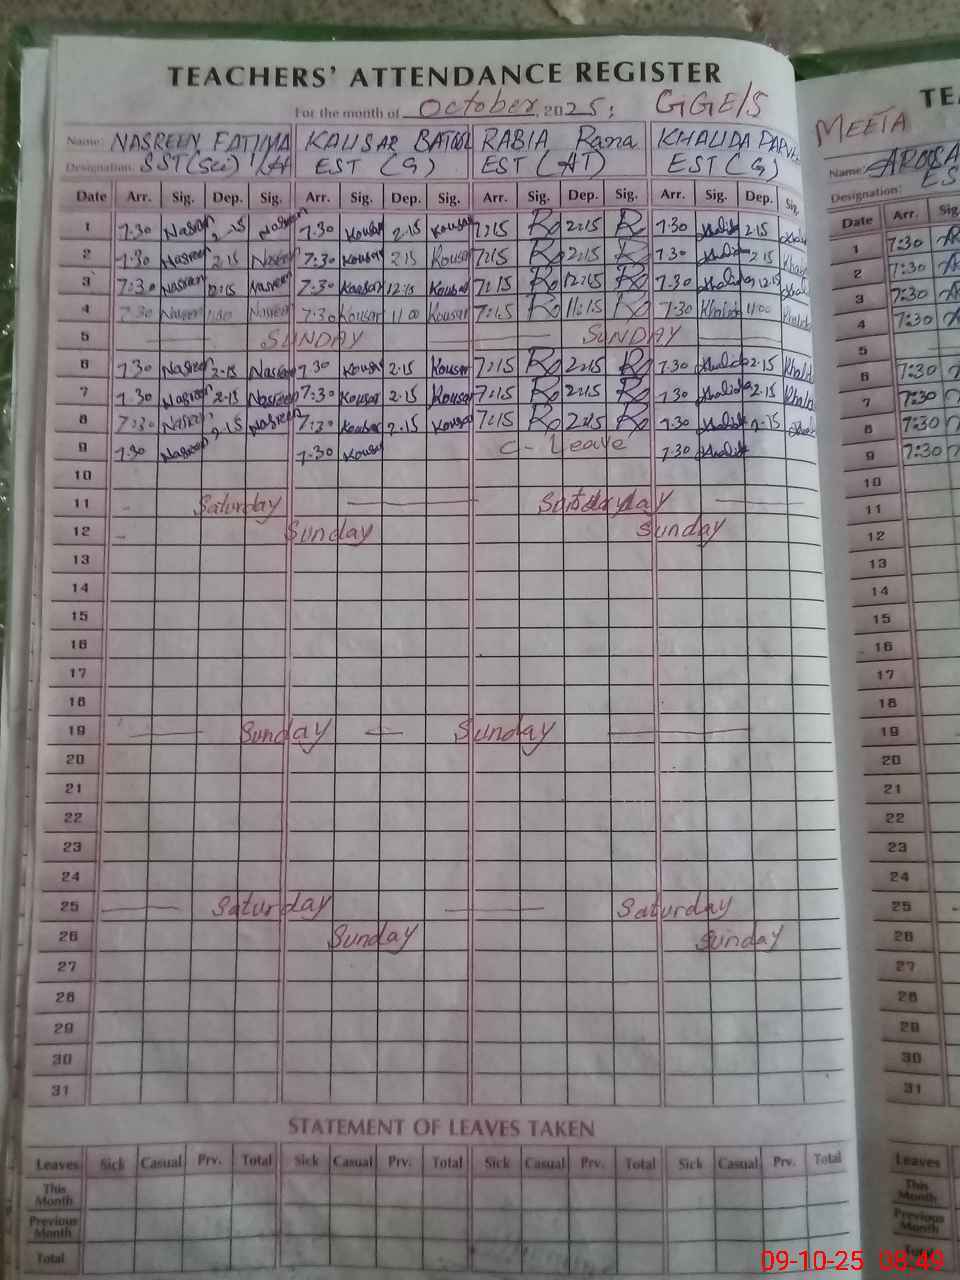 TEACHERS' ATTENDANCE REGISTER
For the month of October, 2025; GGE/S
Name: NASREEN FATIMA KAUSAR BATOOL RABIA Rana KHALIDA
Designation: SST(Sci) EST (G) EST (AT) EST (G)
Date Arr. Sig. Dep. Sig. Arr. Sig. Dep. Sig. Arr. Sig. Dep. Sig. Arr. Sig. Dep. Sig.
1 7.30 Nasreen 2.15 Nasreen 7.30 Kousar 2.15 Kousar 7:15 2:15 7.30 Khalida 2.15
2 7.30 Nasreen 2.15 Nasreen 7:30 Kousar 2.15 Kousar 7:15 2:15 7.30 Khalida 2.15
3 7:30 Nasreen 12:15 Nasreen 7.30 Kousar 12:15 Kousar 7:15 12:15 7.30 Khalida 12.15
4 7 30 Nasreen Nasreen 7:30 Kousar 11 00 Kousar 7:15 11:15 7:30 Khalida 11:00 Khalida
5 SUNDAY SUNDAY
6 7.30 Nasreen 2.15 Nasreen 7.30 Kousar 2.15 Kousar 7:15 2:15 7.30 Khalida 2.15
7 7.30 Nasreen 2.15 Nasreen 7:30 Kousar 2.15 Kousar 7:15 2:15 7.30 Khalida 2.15
8 7:30 Nasreen 2.15 Nasreen 7:30 Kousar 2.15 Kousar 7:15 2:15 7.30 Khalida 2.15
9 7.30 Nasreen 7.30 Kousar C - Leave 7.30 Khalida
10
11 Saturday Saturday
12 Sunday Sunday
13
14
15
16
17
18
19 Sunday Sunday
20
21
22
23
24
25 Saturday Saturday
26 Sunday Sunday
27
28
29
30
31
STATEMENT OF LEAVES TAKEN
Leaves Sick Casual Prv. Total Sick Casual Prv. Total Sick Casual Prv. Total Sick Casual Prv. Total
This Month
Previous Month
Total
MEETA
Name:
Designation:
Date Arr.
1 7:30
2 7:30
3 7:30
4 7:30
5
6 7:30
7 7:30
8 7:30
9 7:30
10
11
12
13
14
15
16
17
18
19
20
21
22
23
24
25
26
27
28
29
30
31
Leaves
This Month
Previous Month
09-10-25 08:49